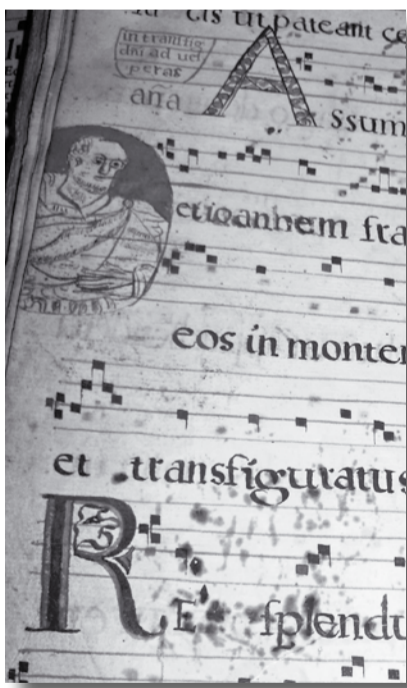 cis ut pateant ce
in transfig
dni ad ues
peras
aña A ssum
et ioannem fra
eos in monte
et transfiguratus
R E splendu